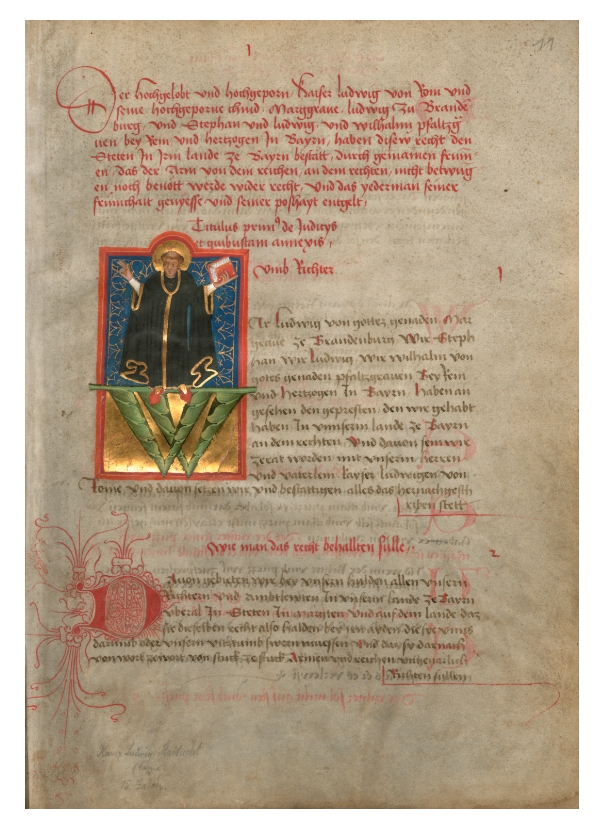 1
19
Der hochgelobt vnd hochgeporn kaiser ludwig von Rom vnd
seine hochgeporne chind Marggraue ludwig zu Brande
burg, vnd Stephan vnd ludwig, vnd wilhalm pfaltzg
uen bey Rein vnd hertzogen In Bayrn, haben disew recht den
Steten in Irm lande ze Bayrn bestatt, durch gemainen frum
en, das der Arm von dem reichen, an dem rechten, nicht betwug
en noch benott werde wider recht, Vnd das yederman seiner
frumchait genyesse vnd seiner poshayt entgelt,
Titulus primus de Judicys
et quibusdam annexis,
Vmb Richter
1
Wir Ludwig von gottes genaden, Mar
graue ze Brandenburg Wir Steph
han wir Ludwig wir wilhalm von
gotes genaden pfaltzgrauen Bey Rein
vnd hertzogen In Bayrn, haben an
gesehen den gepresten, den wir gehabt
haben In vnnserm lande, ze Bayrn
an dem rechten Vnd dauon sein wir
zerat worden, mit vnserm herren
vnd vaterlein kayser Ludwigen von
Rome, Vnd dauon setzen wir, vnd bestattigen, alles das hernach gesch
riben stett
Wie man das recht behallten sulle,
2
Dauon gebieten wir bey vnsern hulden allen vnsern
Richtern vnd Ambtlewten In vnserm lande ze Bayrn
vberal In Steten In märgten Vnd auf dem lande daz
sie dieselben recht also halden bey irn ayden die sy vnns
darumb oder vnsern vitztumb swern muessen Vnd das sy darnach
von wort ze wort von stuck ze stuck Armen vnd reichen vngeuarlich
Richten sullen